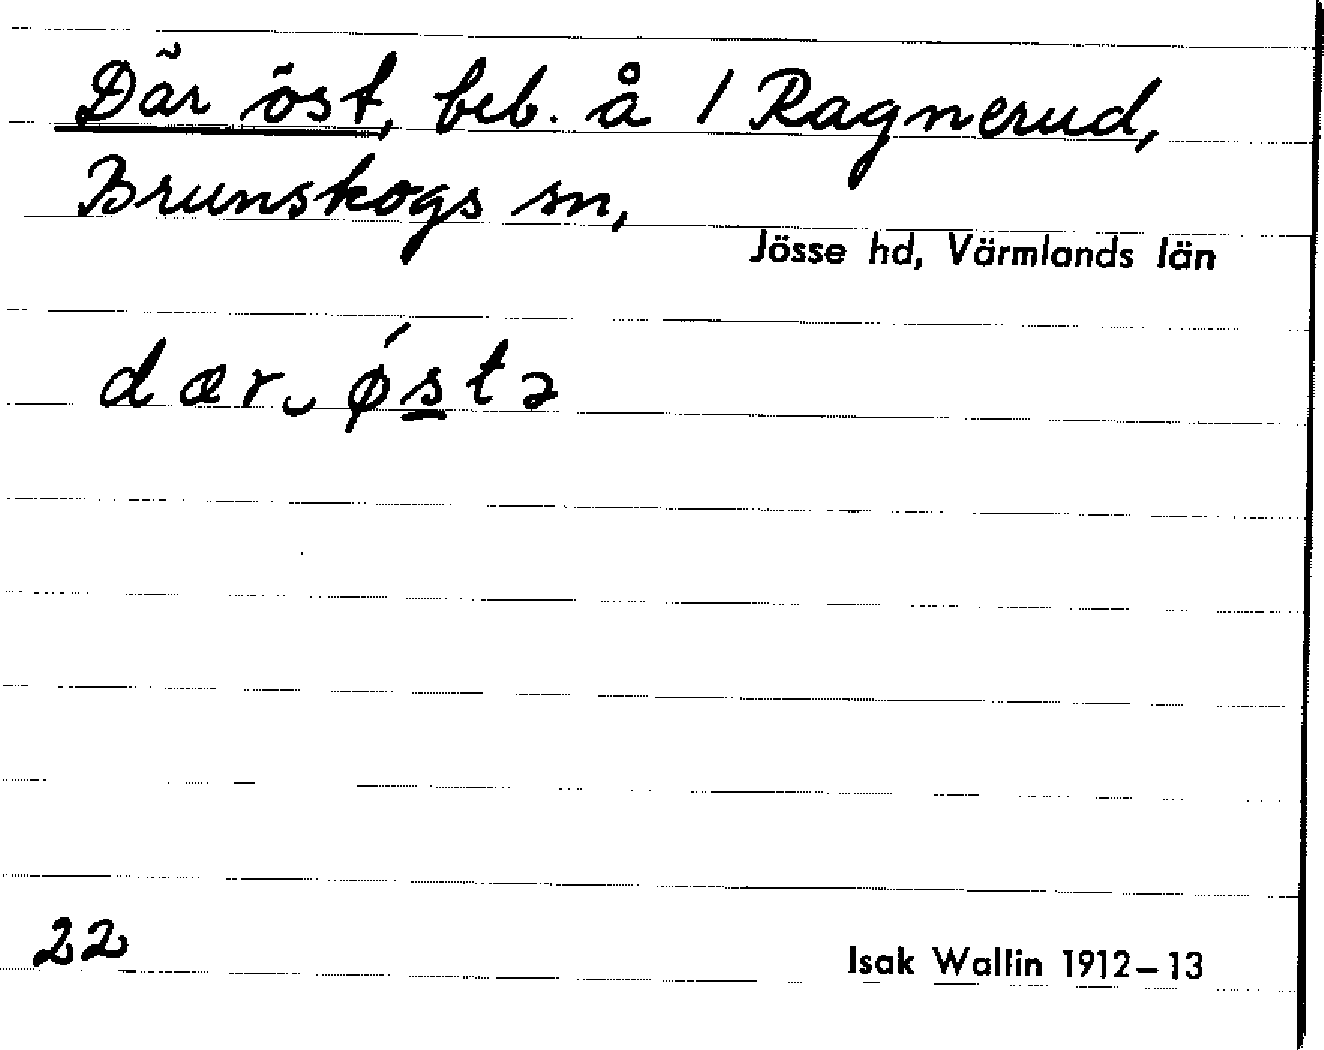 Där öst, beb. å 1 Ragnerud,
Brunskogs sn,
Jösse hd, Värmlands län
dær‿ ǿs̲tə
22
Isak Wallin 1912–13